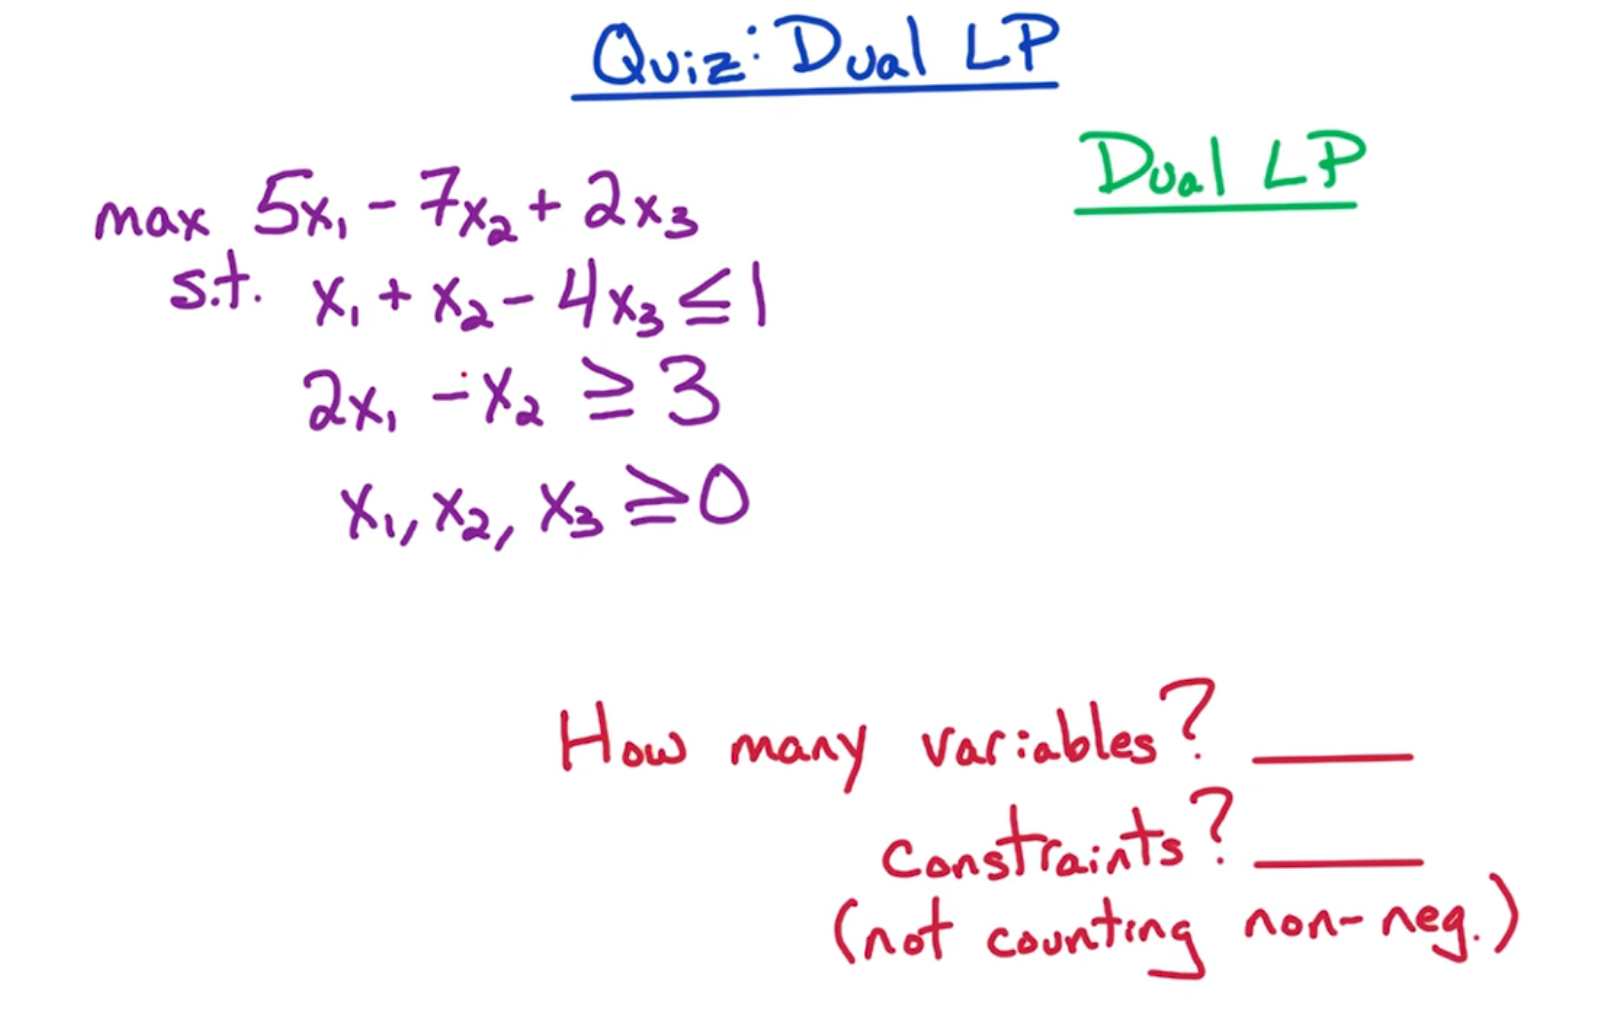 Quiz: Dual LP
Dual LP
max 5x₁ - 7x₂ + 2x₃
s.t. x₁ + x₂ - 4x₃ ≤ 1
2x₁ - x₂ ≥ 3
x₁, x₂, x₃ ≥ 0
How many variables? ____
constraints? ____
(not counting non-neg.)